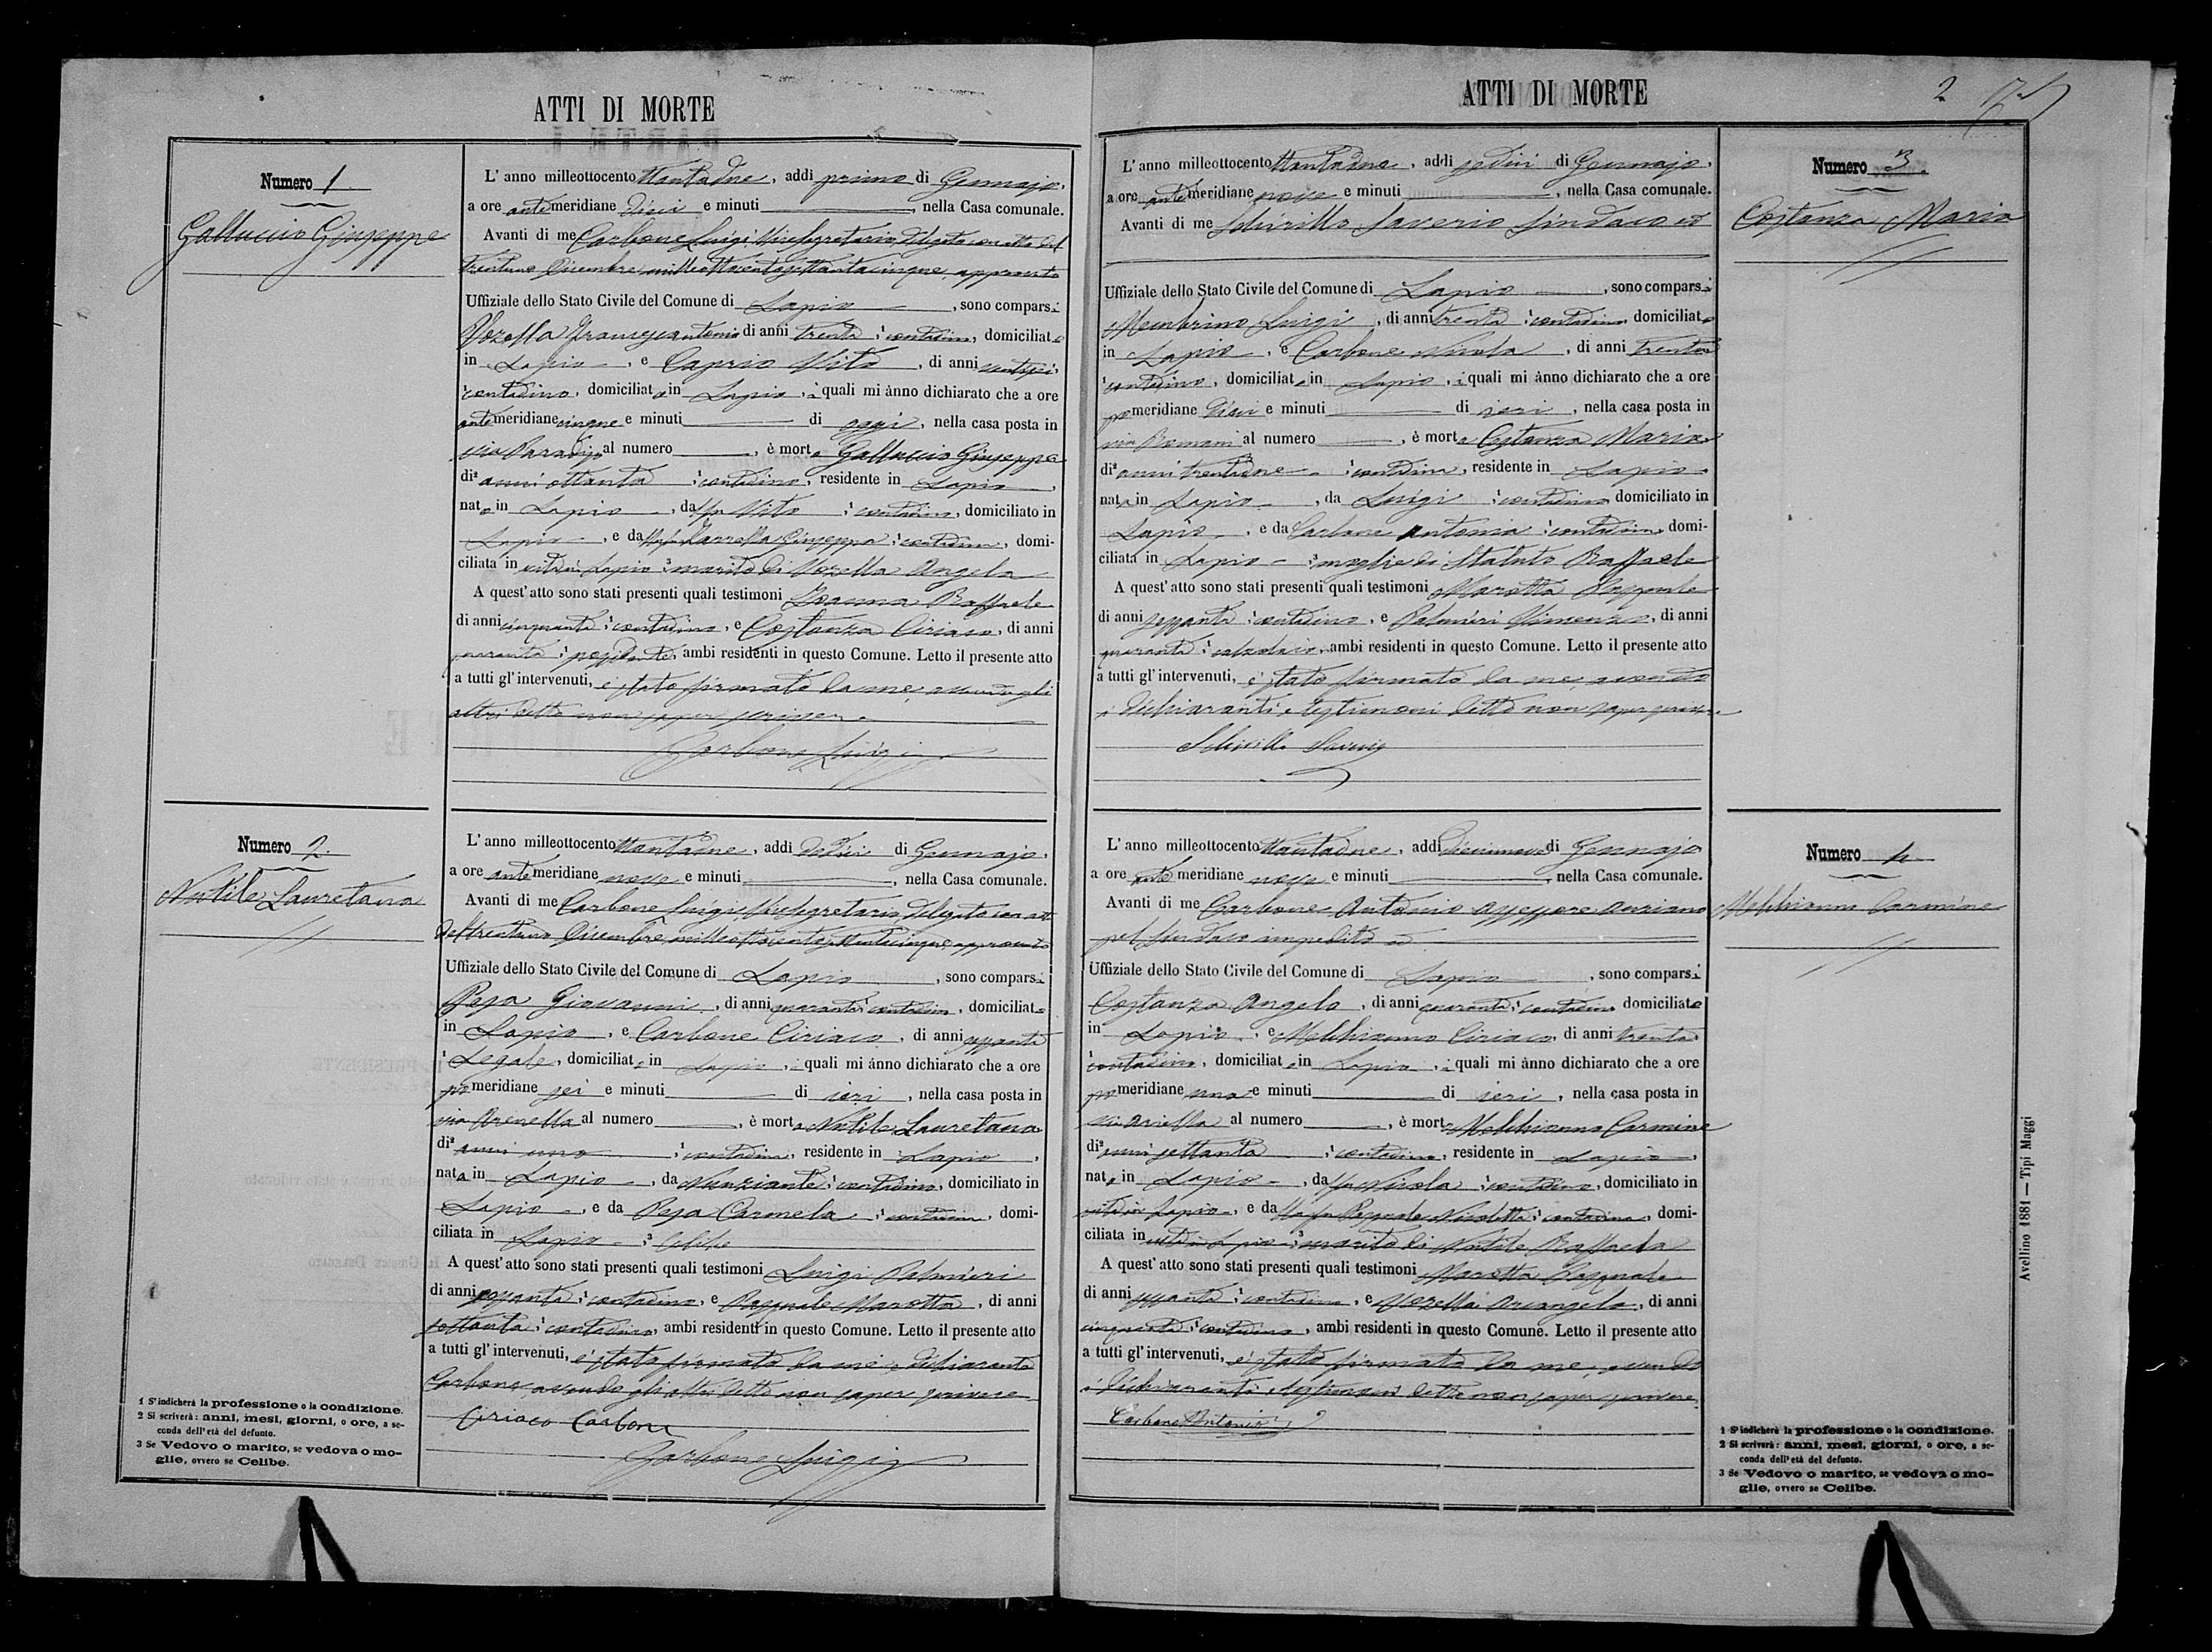 ATTI DI MORTE
Numero 1
Galluccio Giuseppe
L'anno milleottocento ottantadue, addi primo di Gennajo,
a ore antemeridiane dieci e minuti, nella Casa comunale.
Avanti di me Carbone Luigi Vicesegretario delegato con atto del
trentuno Dicembre milleottocentosettantacinque approvato
Uffiziale dello Stato Civile del Comune di Lapio, sono comparsi
Vozella Francescantonio di anni trenta, contadino, domiciliato
in Lapio, e Caprio Vito, di anni ventisei,
contadino, domiciliato in Lapio, i quali mi ànno dichiarato che a ore
antemeridiane cinque e minuti di oggi, nella casa posta in
via Paradiso al numero, è morto Galluccio Giuseppe
di² anni ottanta, contadino, residente in Lapio,
nato in Lapio, da fu Vito, contadino, domiciliato in
Lapio, e da fu Zarrella Giuseppa, contadina, domi-
ciliata in vita in Lapio ³ marito di Vozella Angela
A quest'atto sono stati presenti quali testimoni Raffaele
di anni cinquanta, contadino, e Costanza Ciriaco, di anni
quaranta, possidente, ambi residenti in questo Comune. Letto il presente atto
a tutti gl'intervenuti, è stato firmato da me, avendo gli
altri detto non saper scrivere.
Carbone Luigi
Numero 2.
Nutile Lauretana
L'anno milleottocento ottantadue, addi dodici di Gennajo,
a ore antemeridiane nove e minuti, nella Casa comunale.
Avanti di me Carbone Luigi Vicesegretario delegato con atto
del trentuno Dicembre milleottocentosettantacinque approvato
Uffiziale dello Stato Civile del Comune di Lapio, sono comparsi
Pepa Giovanni, di anni quaranta, contadino, domiciliato
in Lapio, e Carbone Ciriaco, di anni sessanta
Legale, domiciliato in Lapio, i quali mi ànno dichiarato che a ore
pomeridiane sei e minuti di ieri, nella casa posta in
via Arenella al numero, è morta Nutile Lauretana
di² anni uno, contadina, residente in Lapio,
nata in Lapio, da Nunziante, contadino, domiciliato in
Lapio, e da Pepa Carmela, contadina, domi-
ciliata in Lapio ³ Celibe
A quest'atto sono stati presenti quali testimoni Luigi Palmieri
di anni sessanta, contadino, e Pasquale Marotta, di anni
settanta, contadino, ambi residenti in questo Comune. Letto il presente atto
a tutti gl'intervenuti, è stato firmato da me e dichiarante
Carbone avendo gli altri detto non saper scrivere
Ciriaco Carbone
Carbone Luigi
1 S'indicherà la professione o la condizione.
2 Si scriverà: anni, mesi, giorni, o ore, a se-
conda dell'età del defunto.
3 Se Vedovo o marito, se vedova o mo-
glie, ovvero se Celibe.
ATTI DI MORTE
2
Numero 3.
Costanza Maria
L'anno milleottocento ottantadue, addi sedici di Gennajo,
a ore antemeridiane nove e minuti, nella Casa comunale.
Avanti di me Schirillo Saverio Sindaco ed
Uffiziale dello Stato Civile del Comune di Lapio, sono comparsi
Membrino Luigi, di anni trenta, contadino domiciliato
in Lapio, e Carbone Nicola, di anni trenta
contadino, domiciliato in Lapio, i quali mi ànno dichiarato che a ore
pomeridiane dieci e minuti di ieri, nella casa posta in
via Romani al numero, è morta Costanza Maria
di² anni trentadue, contadina, residente in Lapio,
nata in Lapio, da Luigi, contadino domiciliato in
Lapio, e da Carbone Antonia, contadina domi-
ciliata in Lapio ³ moglie di Statuto Raffaele
A quest'atto sono stati presenti quali testimoni Marotta Pasquale
di anni settanta, contadino, e Palmieri Vincenzo, di anni
quaranta, calzolaio, ambi residenti in questo Comune. Letto il presente atto
a tutti gl'intervenuti, è stato firmato da me, avendo
i dichiaranti e testimoni detto non saper scrivere
Schirillo Saverio
Numero 4
Melchionna Carmine
L'anno milleottocento ottantadue, addi diecinnove di Gennajo
a ore antemeridiane nove e minuti, nella Casa comunale.
Avanti di me Carbone Antonio assessore anziano
pel Sindaco impedito ed
Uffiziale dello Stato Civile del Comune di Lapio, sono comparsi
Costanza Angelo, di anni quaranta, contadino domiciliato
in Lapio, e Melchionna Ciriaco, di anni trenta
contadino, domiciliato in Lapio, i quali mi ànno dichiarato che a ore
pomeridiane una e minuti di ieri, nella casa posta in
via Ariella al numero, è morto Melchionna Carmine
di² anni settanta, contadino, residente in Lapio,
nato in Lapio, da fu Nicola, contadino, domiciliato in
vita in Lapio, e da fu Nicoletta, contadina, domi-
ciliata in vita in Lapio ³ marito di Nutile Raffaela
A quest'atto sono stati presenti quali testimoni Marotta Pasquale
di anni settanta, contadino, e Vozella Arcangelo, di anni
cinquanta, contadino, ambi residenti in questo Comune. Letto il presente atto
a tutti gl'intervenuti, è stato firmato da me, avendo
i dichiaranti e testimoni detto non saper scrivere
Carbone Antonio
1 S'indicherà la professione o la condizione.
2 Si scriverà: anni, mesi, giorni, o ore, a se-
conda dell'età del defunto.
3 Se Vedovo o marito, se vedova o mo-
glie, ovvero se Celibe.
Avellino 1881 — Tipi Maggi